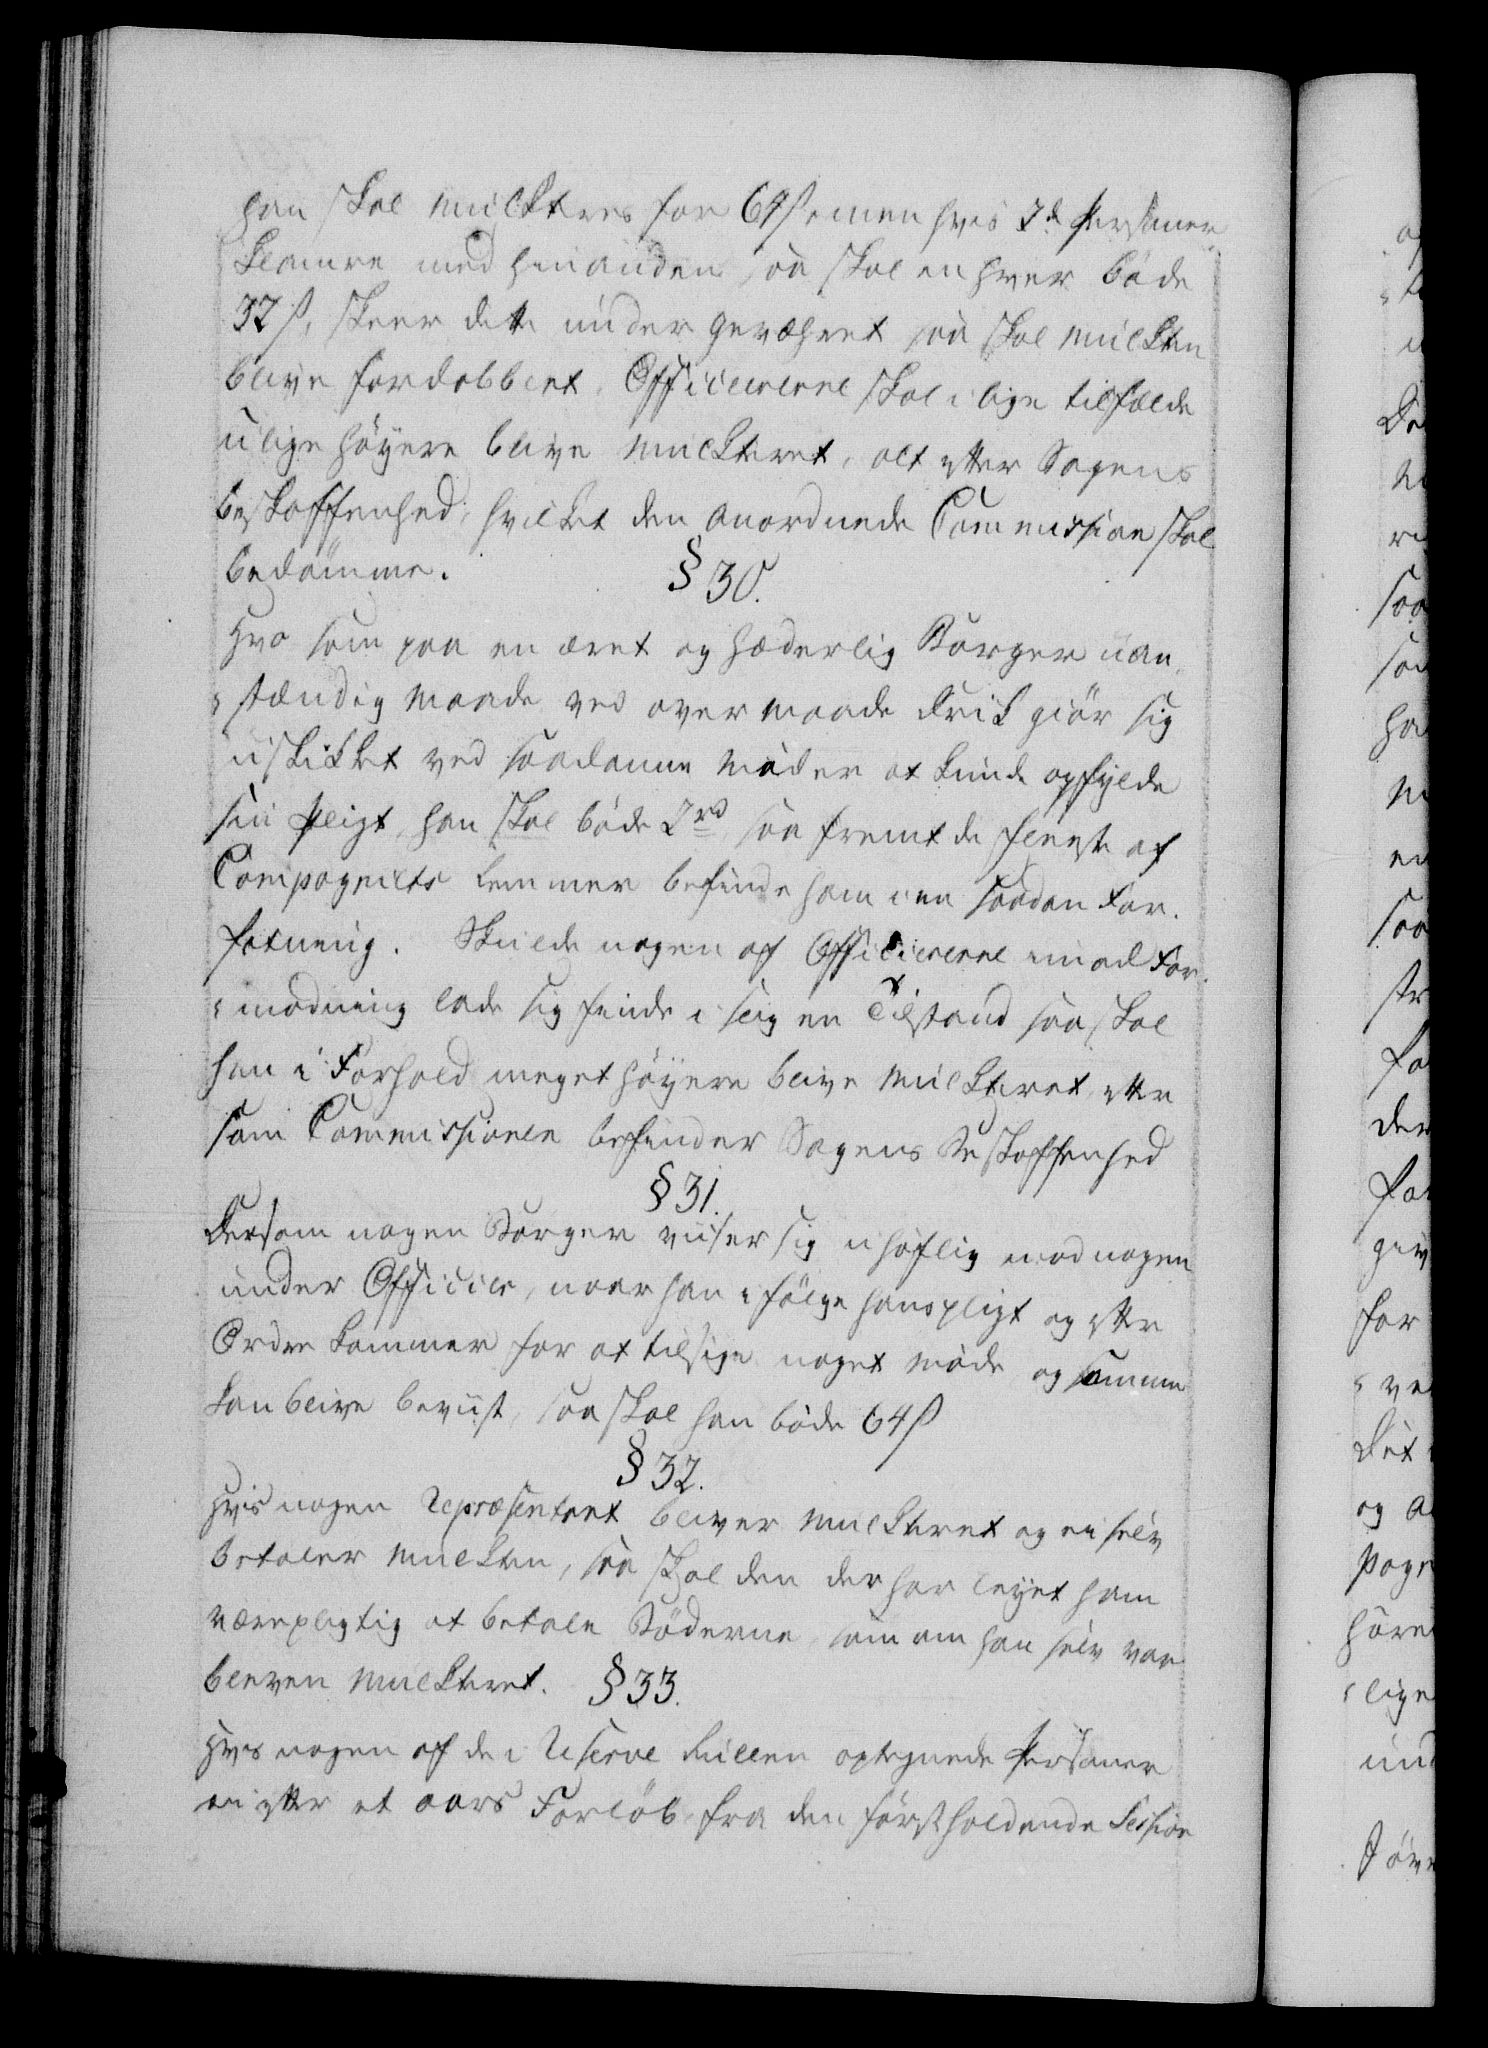 han skal mulkteres for 64 ß, men hvis 2de Personer
klamre med hinanden, saa skal en hver bøde
32 ß, skeer dette under Gevæhret saa skal Mulkten
blive fordobblet. Officiererne skal i lige tilfælde
ulige høyere blive mulkteret, alt efter Sagens
beskaffenhed, hvilket den anordnede Commission skal
bedømme.
§ 30.
Hvo som paa en æret og hæderlig Borger uan-
stændig Maade ved over maade Drik giør sig
uskikket ved saadanne Møder at kunde opfylde
sin Pligt, han skal bøde 2 rd, saa fremt de fleeste af
Compagniets Lemmer befinde ham i en saadan For-
fatning. Skulde nogen af Officiererne imod For-
modning lade sig finde i slig en Tilstand saa skal
han i Forhold meget høyere blive mulkteret, efter
som Commissionen befinder Sagens Beskaffenhed
§ 31.
Dersom nogen Borger viiser sig uhøflig mod nogen
under Officier, naar han i følge hans pligt og efter
Ordre kommer for at tilsige noget Møde, og samme
kan blive beviist, saa skal han bøde 64 ß
§ 32.
Hvis nogen Repræsentant bliver mulkteret og ei selv
betaler Mulkten, saa skal den der har leyet ham
være pligtig at betale Bøderne, som om han selv var
bleven mulkteret. § 33.
Hvis nogen af de i Reserve Rullen optegnede Personer
ei efter et aars Forløb fra den først holdende Session